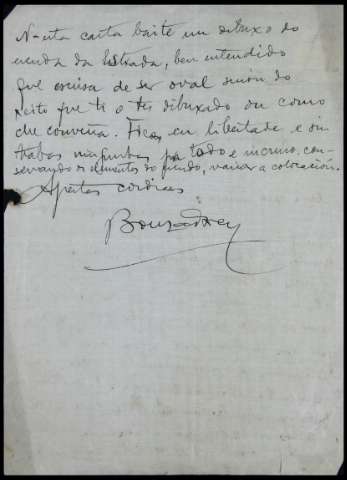 N-esta carta baite un dibuxo do
escudo da Estrada, ben entendido
que escusa de ser oval senon do
xeito que ti o tes dibuxado ou como
che conveña. Ficas en libertade e sin
trabas ningunhas pra todo e incruso, con-
servando os elementos do fundo, variar a colocación.
Apertas cordiaes
Bouza-Brey